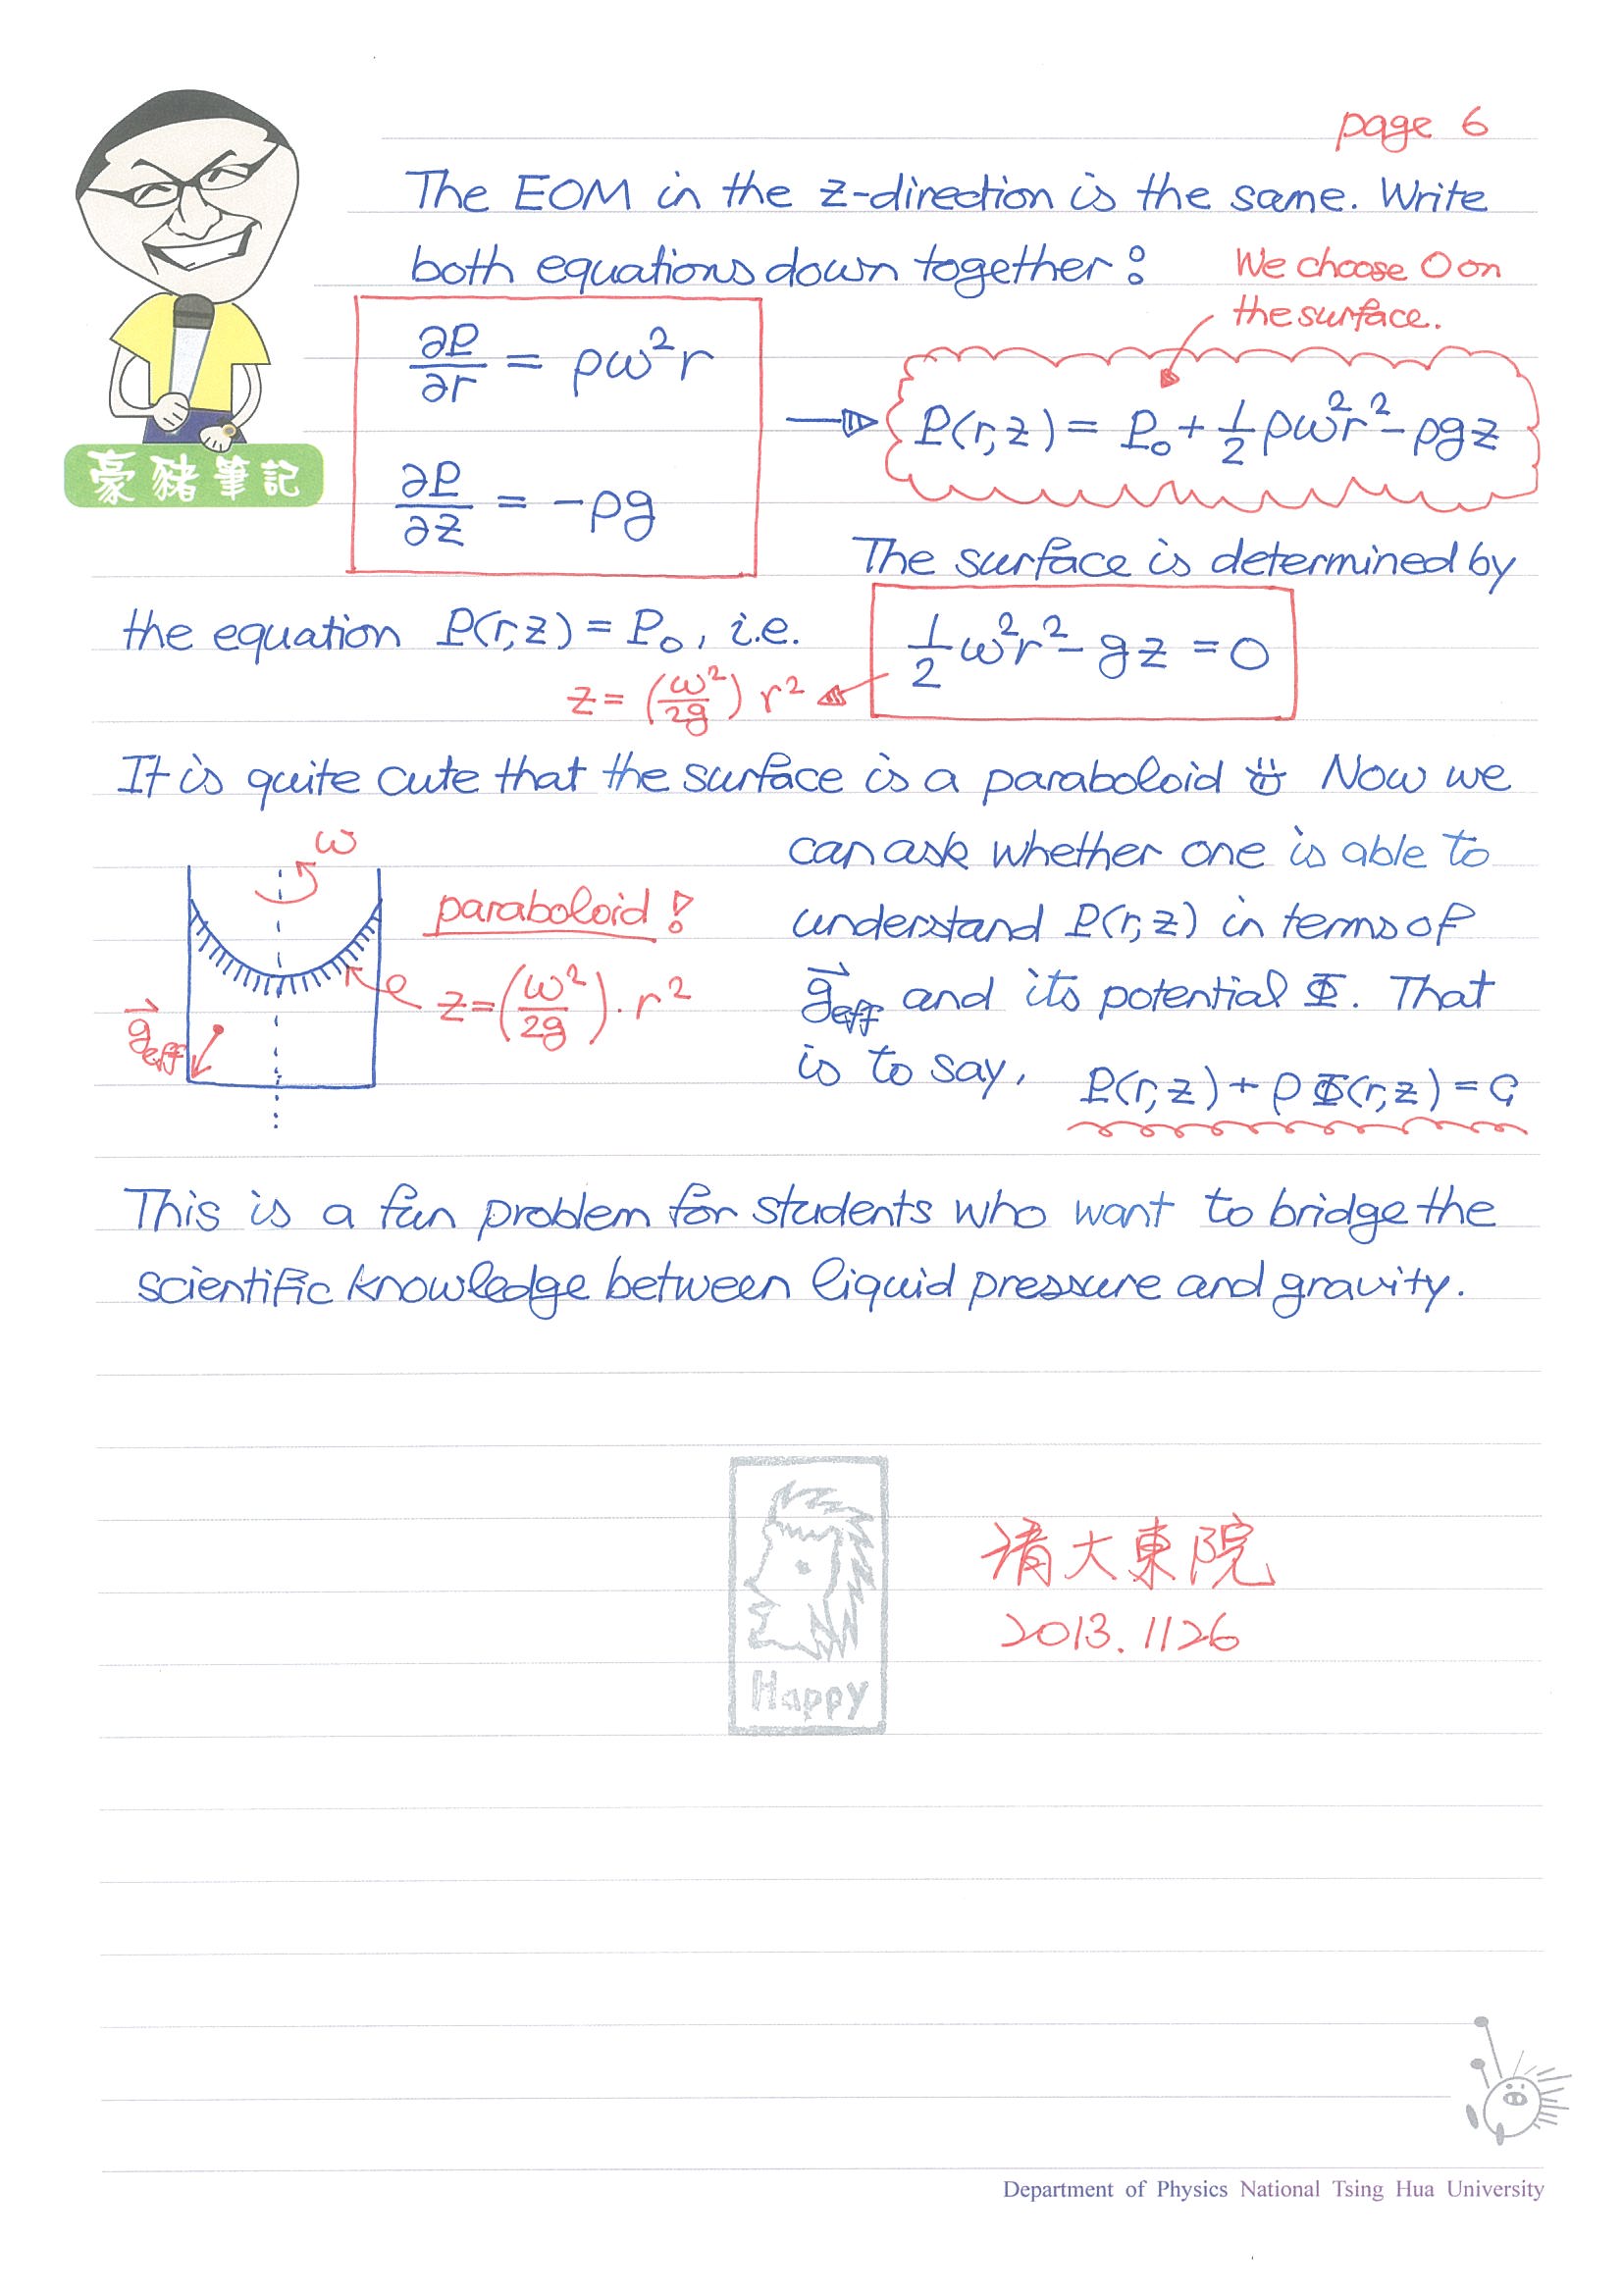 page 6
The EOM in the z-direction is the same. Write
both equations down together:
We choose O on
the surface.
∂P/∂r = ρω²r
∂P/∂z = -ρg
P(r,z) = P₀ + 1/2 ρω²r² - ρgz
豪豬筆記
The surface is determined by
the equation P(r,z) = P₀, i.e.
1/2 ω²r² - gz = 0
z = (ω²/2g) r²
It is quite cute that the surface is a paraboloid Now we
can ask whether one is able to
understand P(r,z) in terms of
g⃗eff and its potential Φ. That
is to say, P(r,z) + ρΦ(r,z) = C
ω
paraboloid!
z = (ω²/2g)·r²
g⃗eff
This is a fun problem for students who want to bridge the
scientific knowledge between liquid pressure and gravity.
清大東院
2013.1126
Happy
Department of Physics National Tsing Hua University